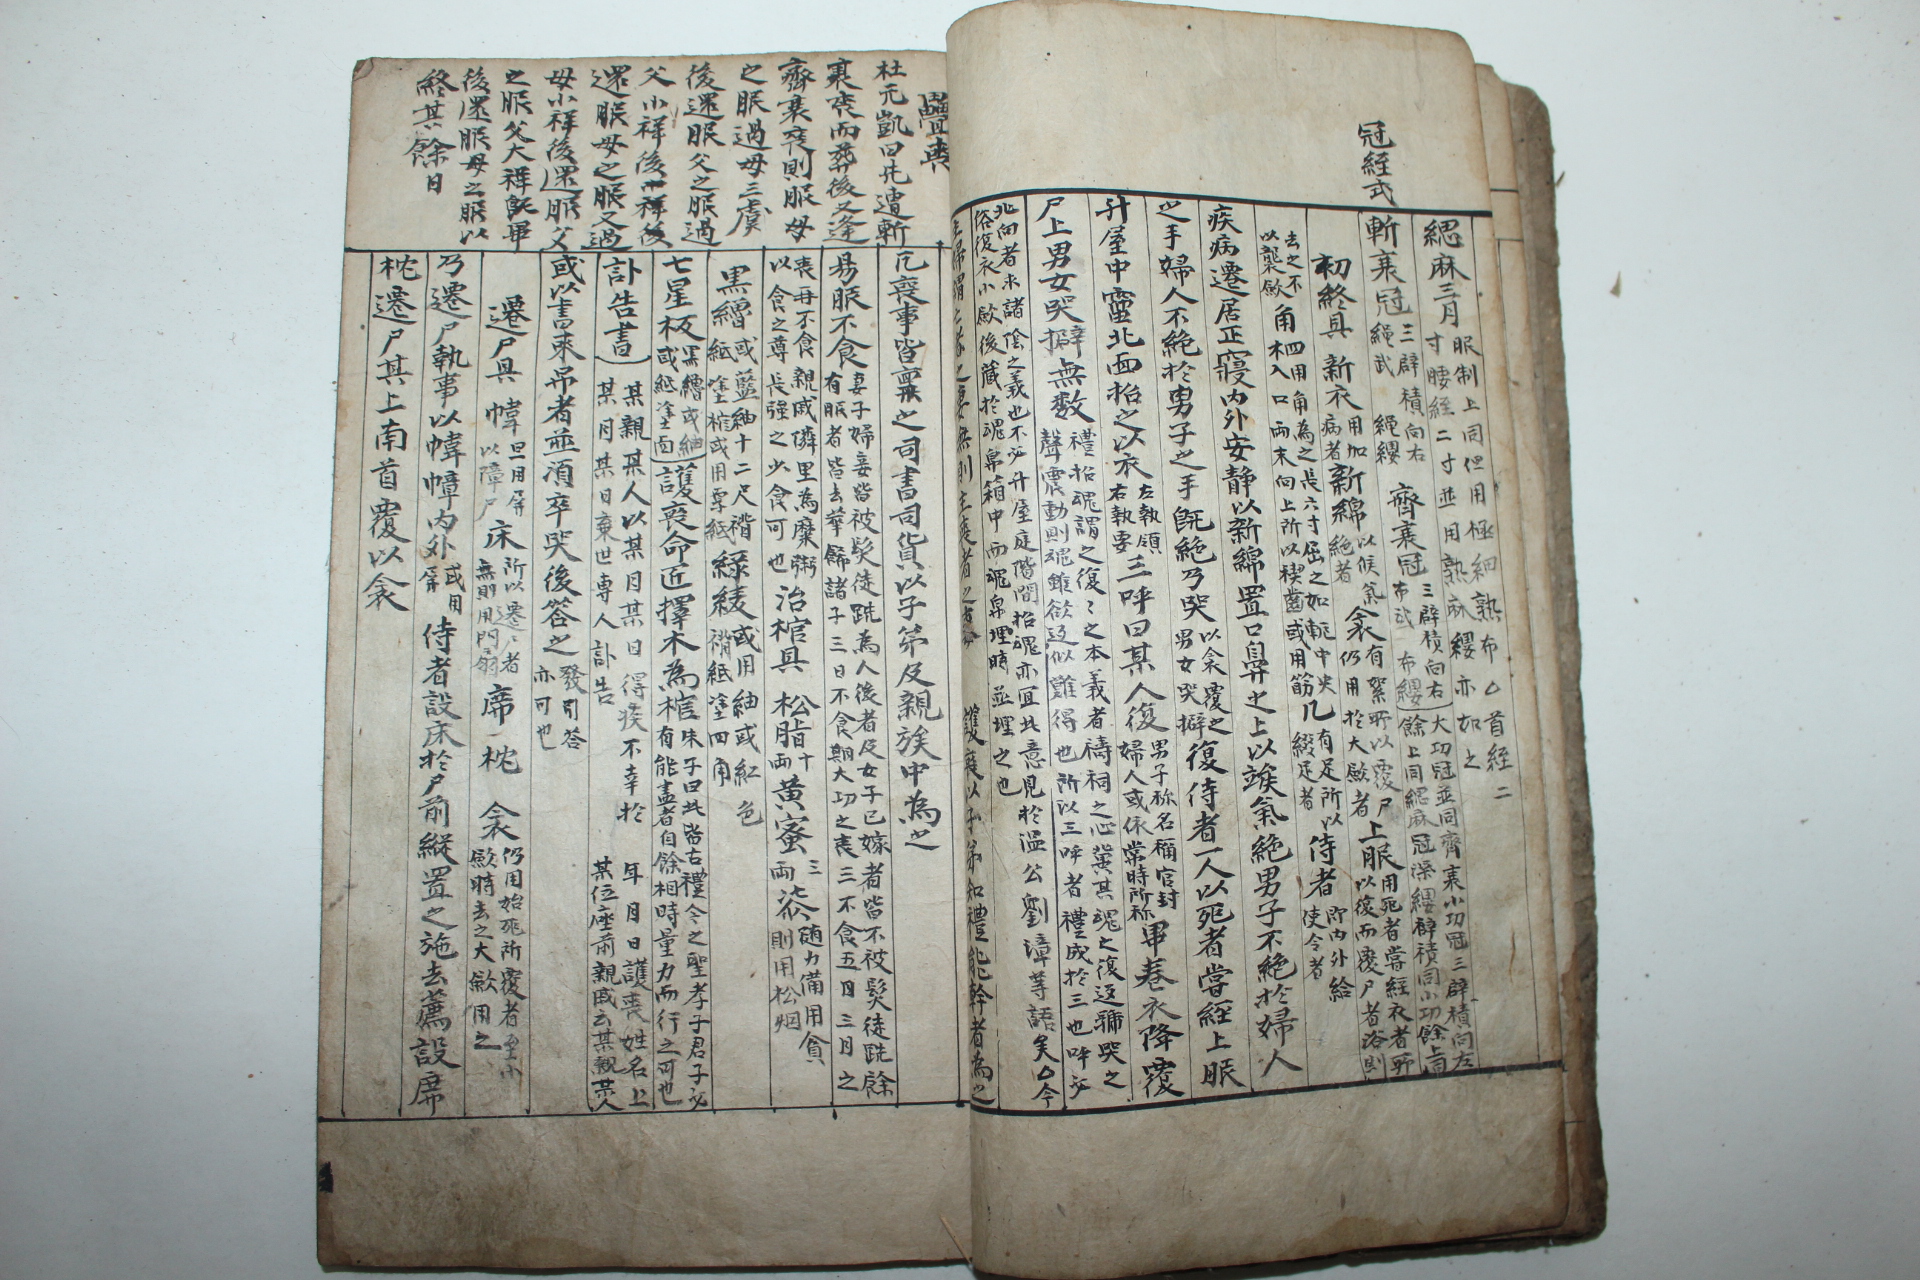 冠絰式
緦麻三月 服制上同但用極細熟布△首絰二
寸腰絰二寸並用熟麻纓亦如之
斬衰冠 三辟積向右 繩武 繩纓 齊衰冠 三辟積向右 布武 布纓 大功冠並同齊衰小功冠三辟積向左
餘上同緦麻冠澡纓辟積同小功餘上同
初終具 新衣 用加病者 新綿 以候氣絶者 衾 有絮所以覆尸仍用於大斂者 上服 用死者嘗經衣者所以復而覆尸者浴則
去之不以襲斂 角柶 四用角為之長六寸屈之如軛中央入口兩末向上所以楔齒或用筋 几 有足所以綴足者 侍者 即內外給使令者
疾病遷居正寢內外安靜以新綿置口鼻之上以竢氣絶男子不絶於婦人
之手婦人不絶於男子之手旣絶乃哭 以衾覆之男女哭擗 復侍者一人以死者嘗經上服
升屋中霤北面招之以衣 左執領右執要 三呼曰某人復 男子称名稱官封婦人或依常時所称 畢卷衣降覆
尸上男女哭擗無数 禮招魂謂之復々之本義者禱祠之心冀其魂之復返號哭之
聲震動則魂雖欲返似難得也所以三呼者禮成於三也呼必
北向者求諸陰之義也不必升屋庭階間招魂亦宜此意見於溫公劉漳等語矣△今
俗復衣小斂後藏於魂帛箱中而魂帛埋時並埋之也
護喪以子弟知禮能幹者為之
疊喪
杜元凱曰先遭斬
衰喪而葬後又逢
齊衰喪則服母
之服過母三虞
後還服父之服過
父小祥後
還服母之服又過
母小祥後還服父
之服父大祥旣畢
後還服母之服以
終其餘日
凡喪事皆稟之司書司貨以子弟及親族中為之
易服不食 妻子婦妾皆被髮徒跣為人後者及女子已嫁者皆不被髮徒跣餘
有服者皆去華餙諸子三日不食期大功之喪三不食五月三月之
喪再不食親戚隣里為糜粥
以食之尊長强之少食可也 治棺具 松脂 十兩 黃蜜 三兩 柒 随力備用貧則用松烟
黑繒 或藍紬十二尺褙紙塗棺或用厚紙 綠綾 或用紬或紅色褙紙塗四角
七星板 黑繒或紬或紙塗面 護喪命匠擇木為棺 朱子曰此皆古禮今之聖孝子君子必
有能盡者自餘相時量力而行之可也
訃告書 某親某人以某月某日得疾不幸於
某月某日棄世専人訃告 年月日護喪姓名上
某位座前親戚云某親某人
或以書來吊者並湏卒哭後答之 發引答亦可也
遷尸具 幃 用屏以障尸 床 所以遷々者無則用門扇 席 枕 衾 仍用始死所覆者至小斂時去之大斂用之
乃遷尸執事以幃幛內外 或用屏 侍者設床於尸前縱置之施去薦設席
枕遷尸其上南首覆以衾